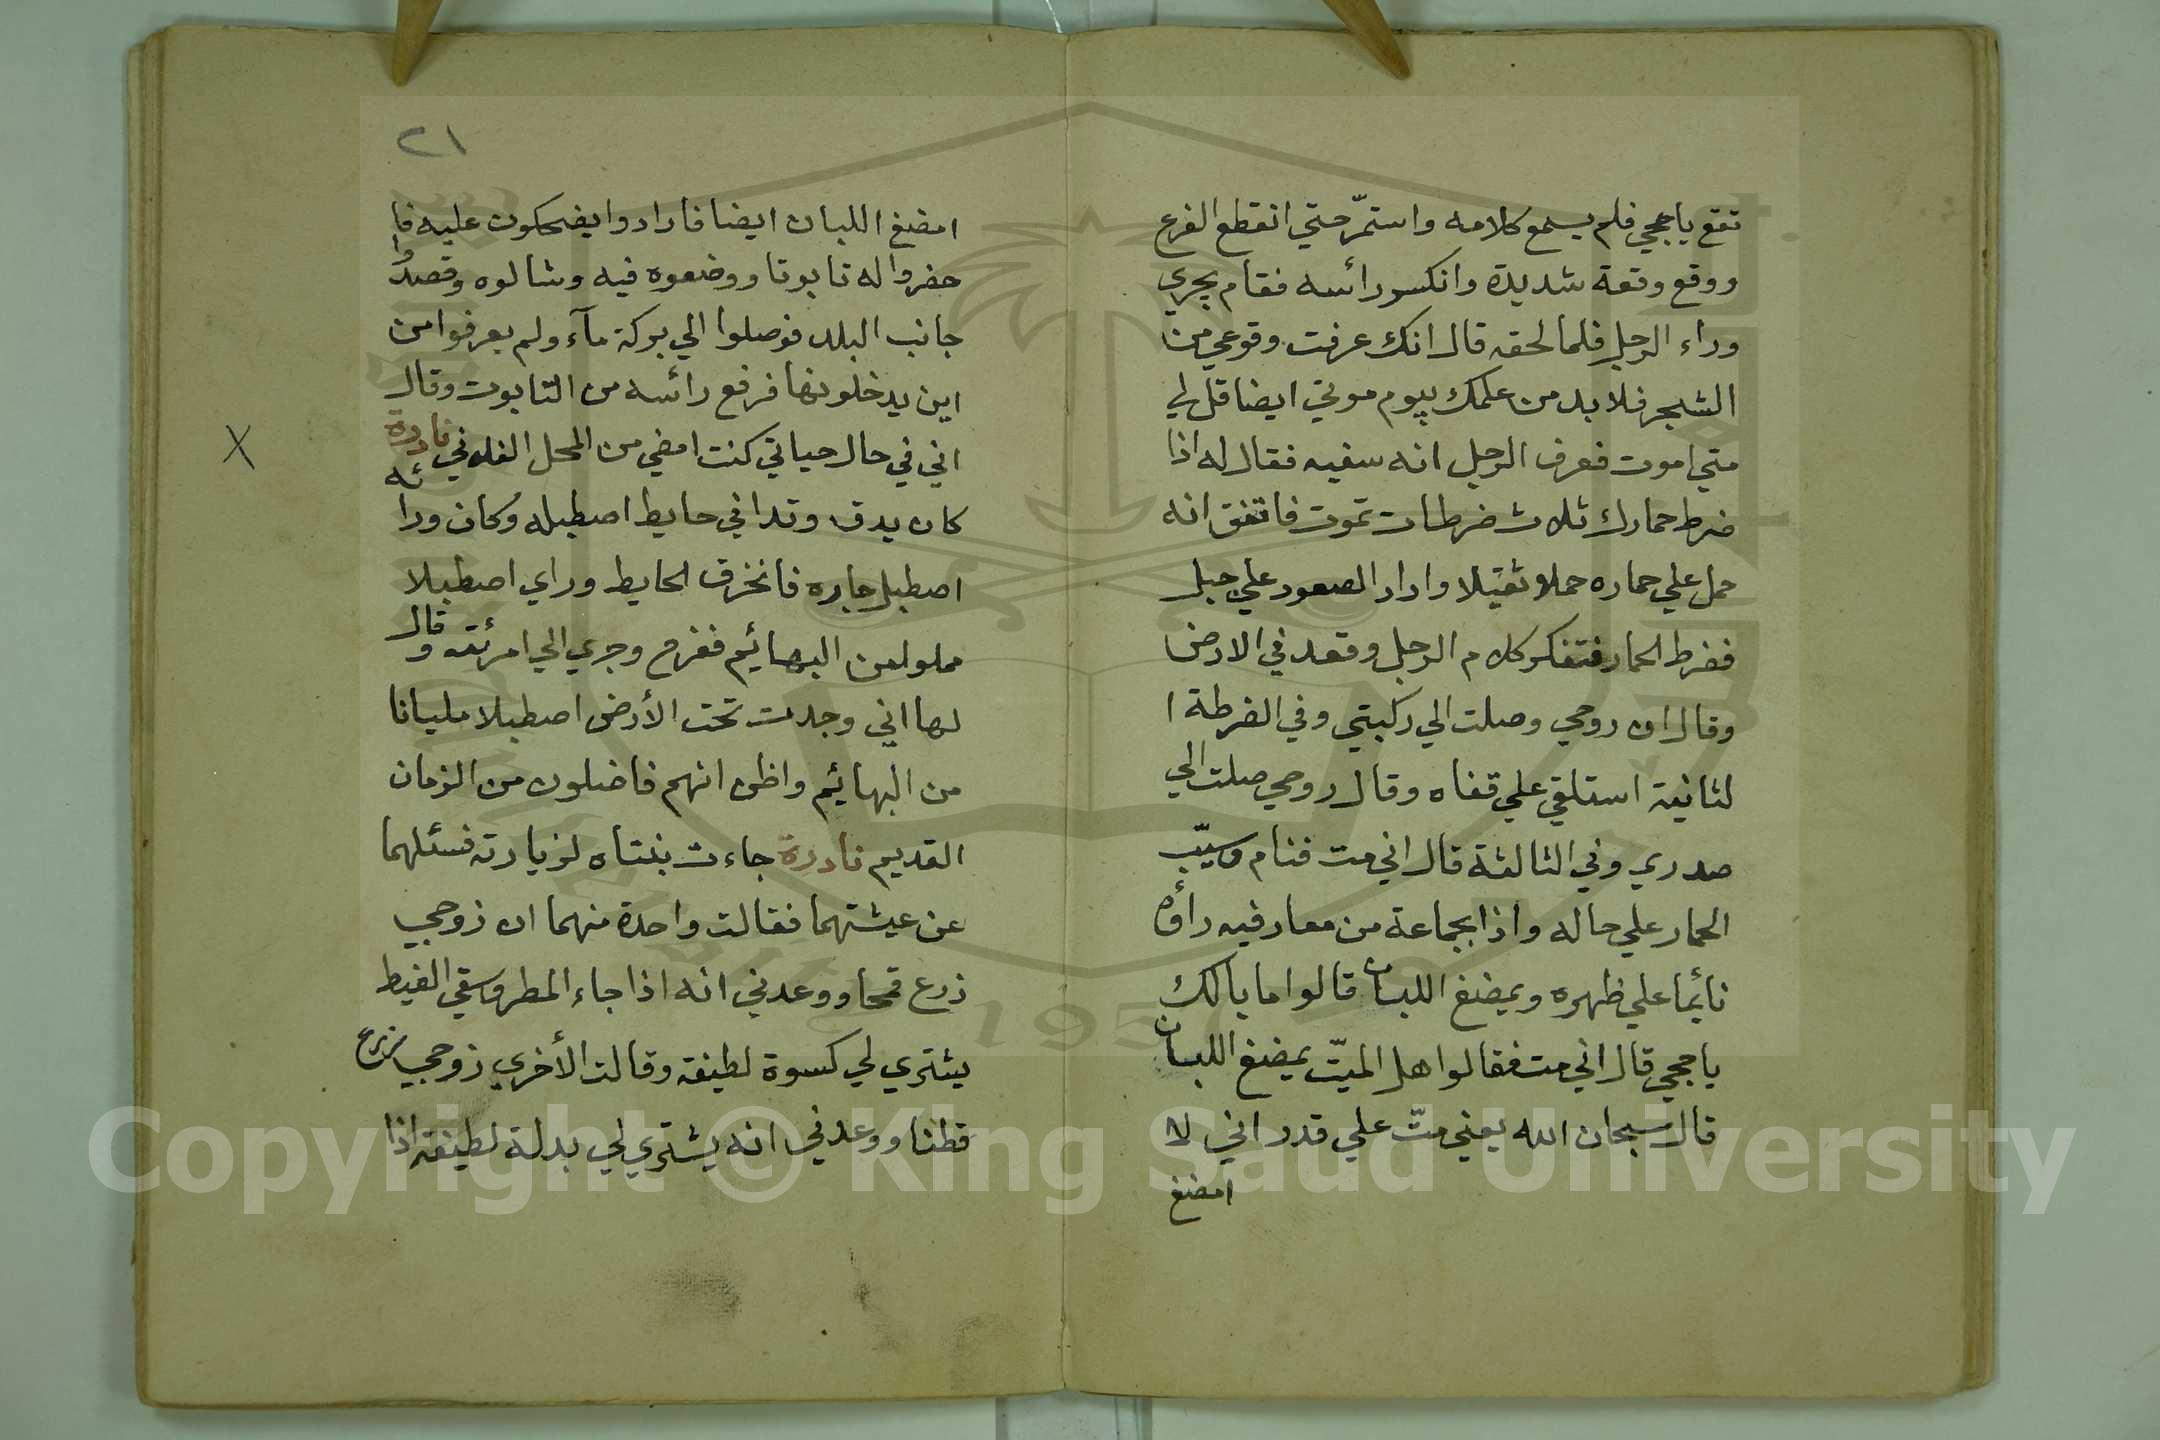 تقع ياججي فلم يسمع كلامه واستمرّ حتي انقطع الفرع
ووقع وقعة شديدة وانكسر رائسه فقام يجري
وراء الرجل فلما لحقه قال انك عرفت وقوعي من
الشجر فلا بد من علمك بيوم موتي ايضا قل لي
متي اموت فعرف الرجل انه سفيه فقال له اذا
ضرط حمارك ثلاث ضرطات تموت فاتفق انه
حمل علي حماره حملا ثقيلا واراد الصعود علي جبل
فضرط الحمار فتفكر كلام الرجل وقعد في الارض
وقال ان روحي وصلت الي ركبتي وفي الضرطة ا
لثانية استلقي علي قفاه وقال روحي صلت الي
صدري وفي الثالثة قال اني مت فنام وسيّب
الحمار علي حاله واذا بجماعة من معارفيه رأوه
نائما علي ظهره ويمضغ اللبان قالوا ما بالك
ياججي قال اني مت فقالوا هل الميّت يمضغ اللبان
قال سبحان الله يعني متّ علي قدر اني لا
امضغ
٢١
امضغ اللبان ايضا فارادوا يضحكون عليه فا
حضروا له تابوتا ووضعوه فيه وشالوه وقصدوا
جانب البلد فوصلوا الي بركة مآء ولم يعرفوا من
اين يدخلونها فرفع رائسه من التابوت وقال
اني في حال حياتي كنت امضي من المحل الفلاني نادرة
كان يدق وتدا في حايط اصطبله وكان ورائه
اصطبل جاره فانخرق الحايط وراي اصطبلا
مملولمن البهائيم ففرح وجري الي امرئته وقال
لها اني وجدت تحت الأرض اصطبلا مليانا
من البهائيم واظن انهم فاضلون من الزمان
القديم نادرة جاءت بنتاه لزيارته فسئلهما
عن عيشتهما فقالت واحدة منهما ان زوجي
زرع قمحا ووعدني انه اذا جاء المطر وسقي الغيط
يشتري لي كسوة لطيفة وقالت الأخري زوجي زرع
قطنا ووعدني انه يشتري لي بدلة لطيفة اذا
Copyright © King Saud University
1957